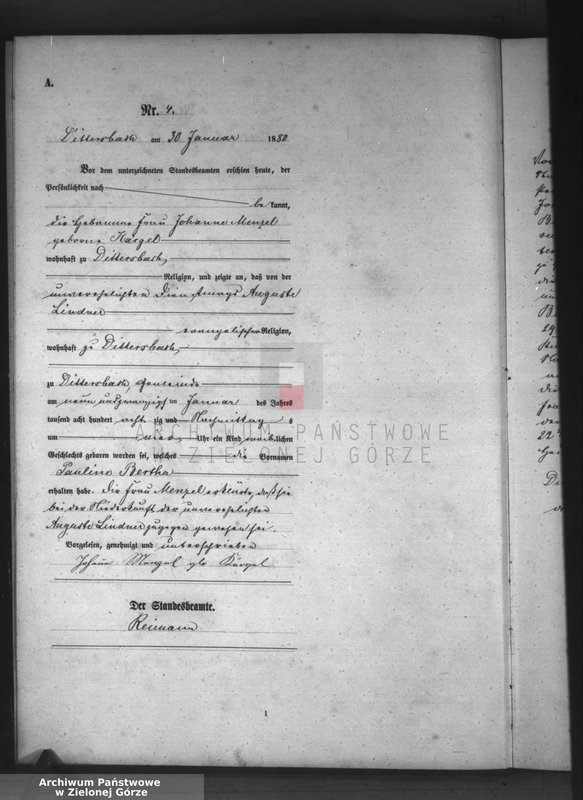 A.
Nr. 4.
Dittersbach am 30 Januar 1880
Vor dem unterzeichneten Standesbeamten erschien heute, der
Persönlichkeit nach
be kannt,
die Hebamme Frau Johanne Menzel
geborne Kargel
wohnhaft zu Dittersbach,
Religion, und zeigte an, daß von der
unverehelichten Dienstmagd Auguste
Lindner
evangelischer Religion,
wohnhaft zu Dittersbach,
zu Dittersbach, Gemeinde
am neun und zwanzigsten Januar des Jahres
tausend acht hundert acht zig und Nachmittag s
um vier Uhr ein Kind weiblichen
Geschlechts geboren worden sei, welches die Vornamen
Pauline Bertha
erhalten habe. Die Frau Menzel erklärte, daß sie
bei der Niederkunft der unverehelichten
Auguste Lindner zugegen gewesen sei.
Vorgelesen, genehmigt und unterschrieben
Johanne Menzel geb. Kargel
Der Standesbeamte.
Reimann
1
ARCHIWUM PAŃSTWOWE
W ZIELONEJ GÓRZE
Archiwum Państwowe
w Zielonej Górze